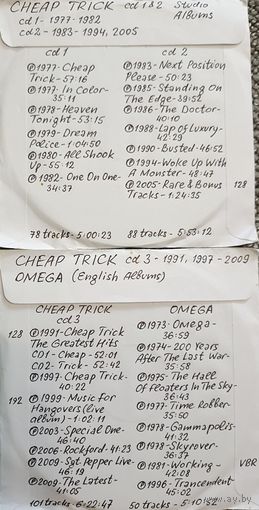 CHEAP TRICK cd 1 & 2 Studio Albums
cd 1 - 1977-1982
cd 2 - 1983-1994, 2005
cd 1
Ⓟ1977-Cheap
Trick-57:16
Ⓟ1977-In Color-
35:11
Ⓟ1978-Heaven
Tonight-53:15
Ⓟ1979-Dream
Police-1:04:50
Ⓟ1980-All Shook
Up-55:12
Ⓟ1982-One On One-
34:37
78 tracks-5:00:23
cd 2
Ⓟ1983-Next Position
Please-50:23
Ⓟ1985-Standing On
The Edge-39:51
Ⓟ1986-The Doctor-
40:10
Ⓟ1988-Lap of Luxury-
42:29
Ⓟ1990-Busted-46:52
Ⓟ1994-Woke Up With
A Monster-48:47
Ⓟ2005-Rare & Bonus
Tracks-1:24:35
128
88 tracks-5:53:12
CHEAP TRICK cd 3-1991, 1997-2009
OMEGA (English Albums)
CHEAP TRICK
cd 3
128 Ⓟ1991-Cheap Trick
The Greatest Hits
CD1-Cheap-52:01
CD2-Trick-52:42
Ⓟ1997-Cheap Trick-
40:22
192 Ⓟ1999-Music for
Hangovers (live
album)-1:02:11
Ⓟ2003-Special One-
46:40
Ⓟ2006-Rockford-41:23
Ⓟ2009-Sgt Pepper Live-
46:19
Ⓟ2009-The Latest-
41:05
101 tracks-6:22:47
OMEGA
Ⓟ1973-Omega-
36:59
Ⓟ1974-200 Years
After The Last War-
35:58
Ⓟ1975-The Hall
Of Floaters In The Sky-
36:43
Ⓟ1977-Time Robber-
35:50
Ⓟ1978-Gammapolis-
41:32
Ⓟ1978-Skyrover-
36:37
Ⓟ1981-Working-
42:08
VBR
Ⓟ1996-Trancendent
45:02
50 tracks-5:10:52
www.ay.by